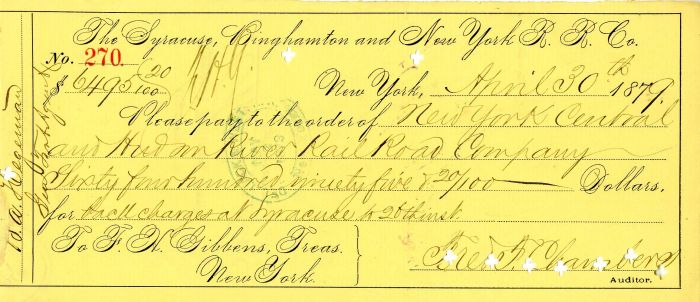 The Syracuse, Binghamton and New York R. R. Co.
No. 270.
$6495 20/100 New York, April 30th 1879.
Please pay to the order of New York Central
and Hudson River Rail Road Company
Sixty four hundred ninety five & 20/100 Dollars,
for back charges at Syracuse to 20th inst.
To F. H. Gibbens, Treas.
New York.
Fred F. Chambers
Auditor.